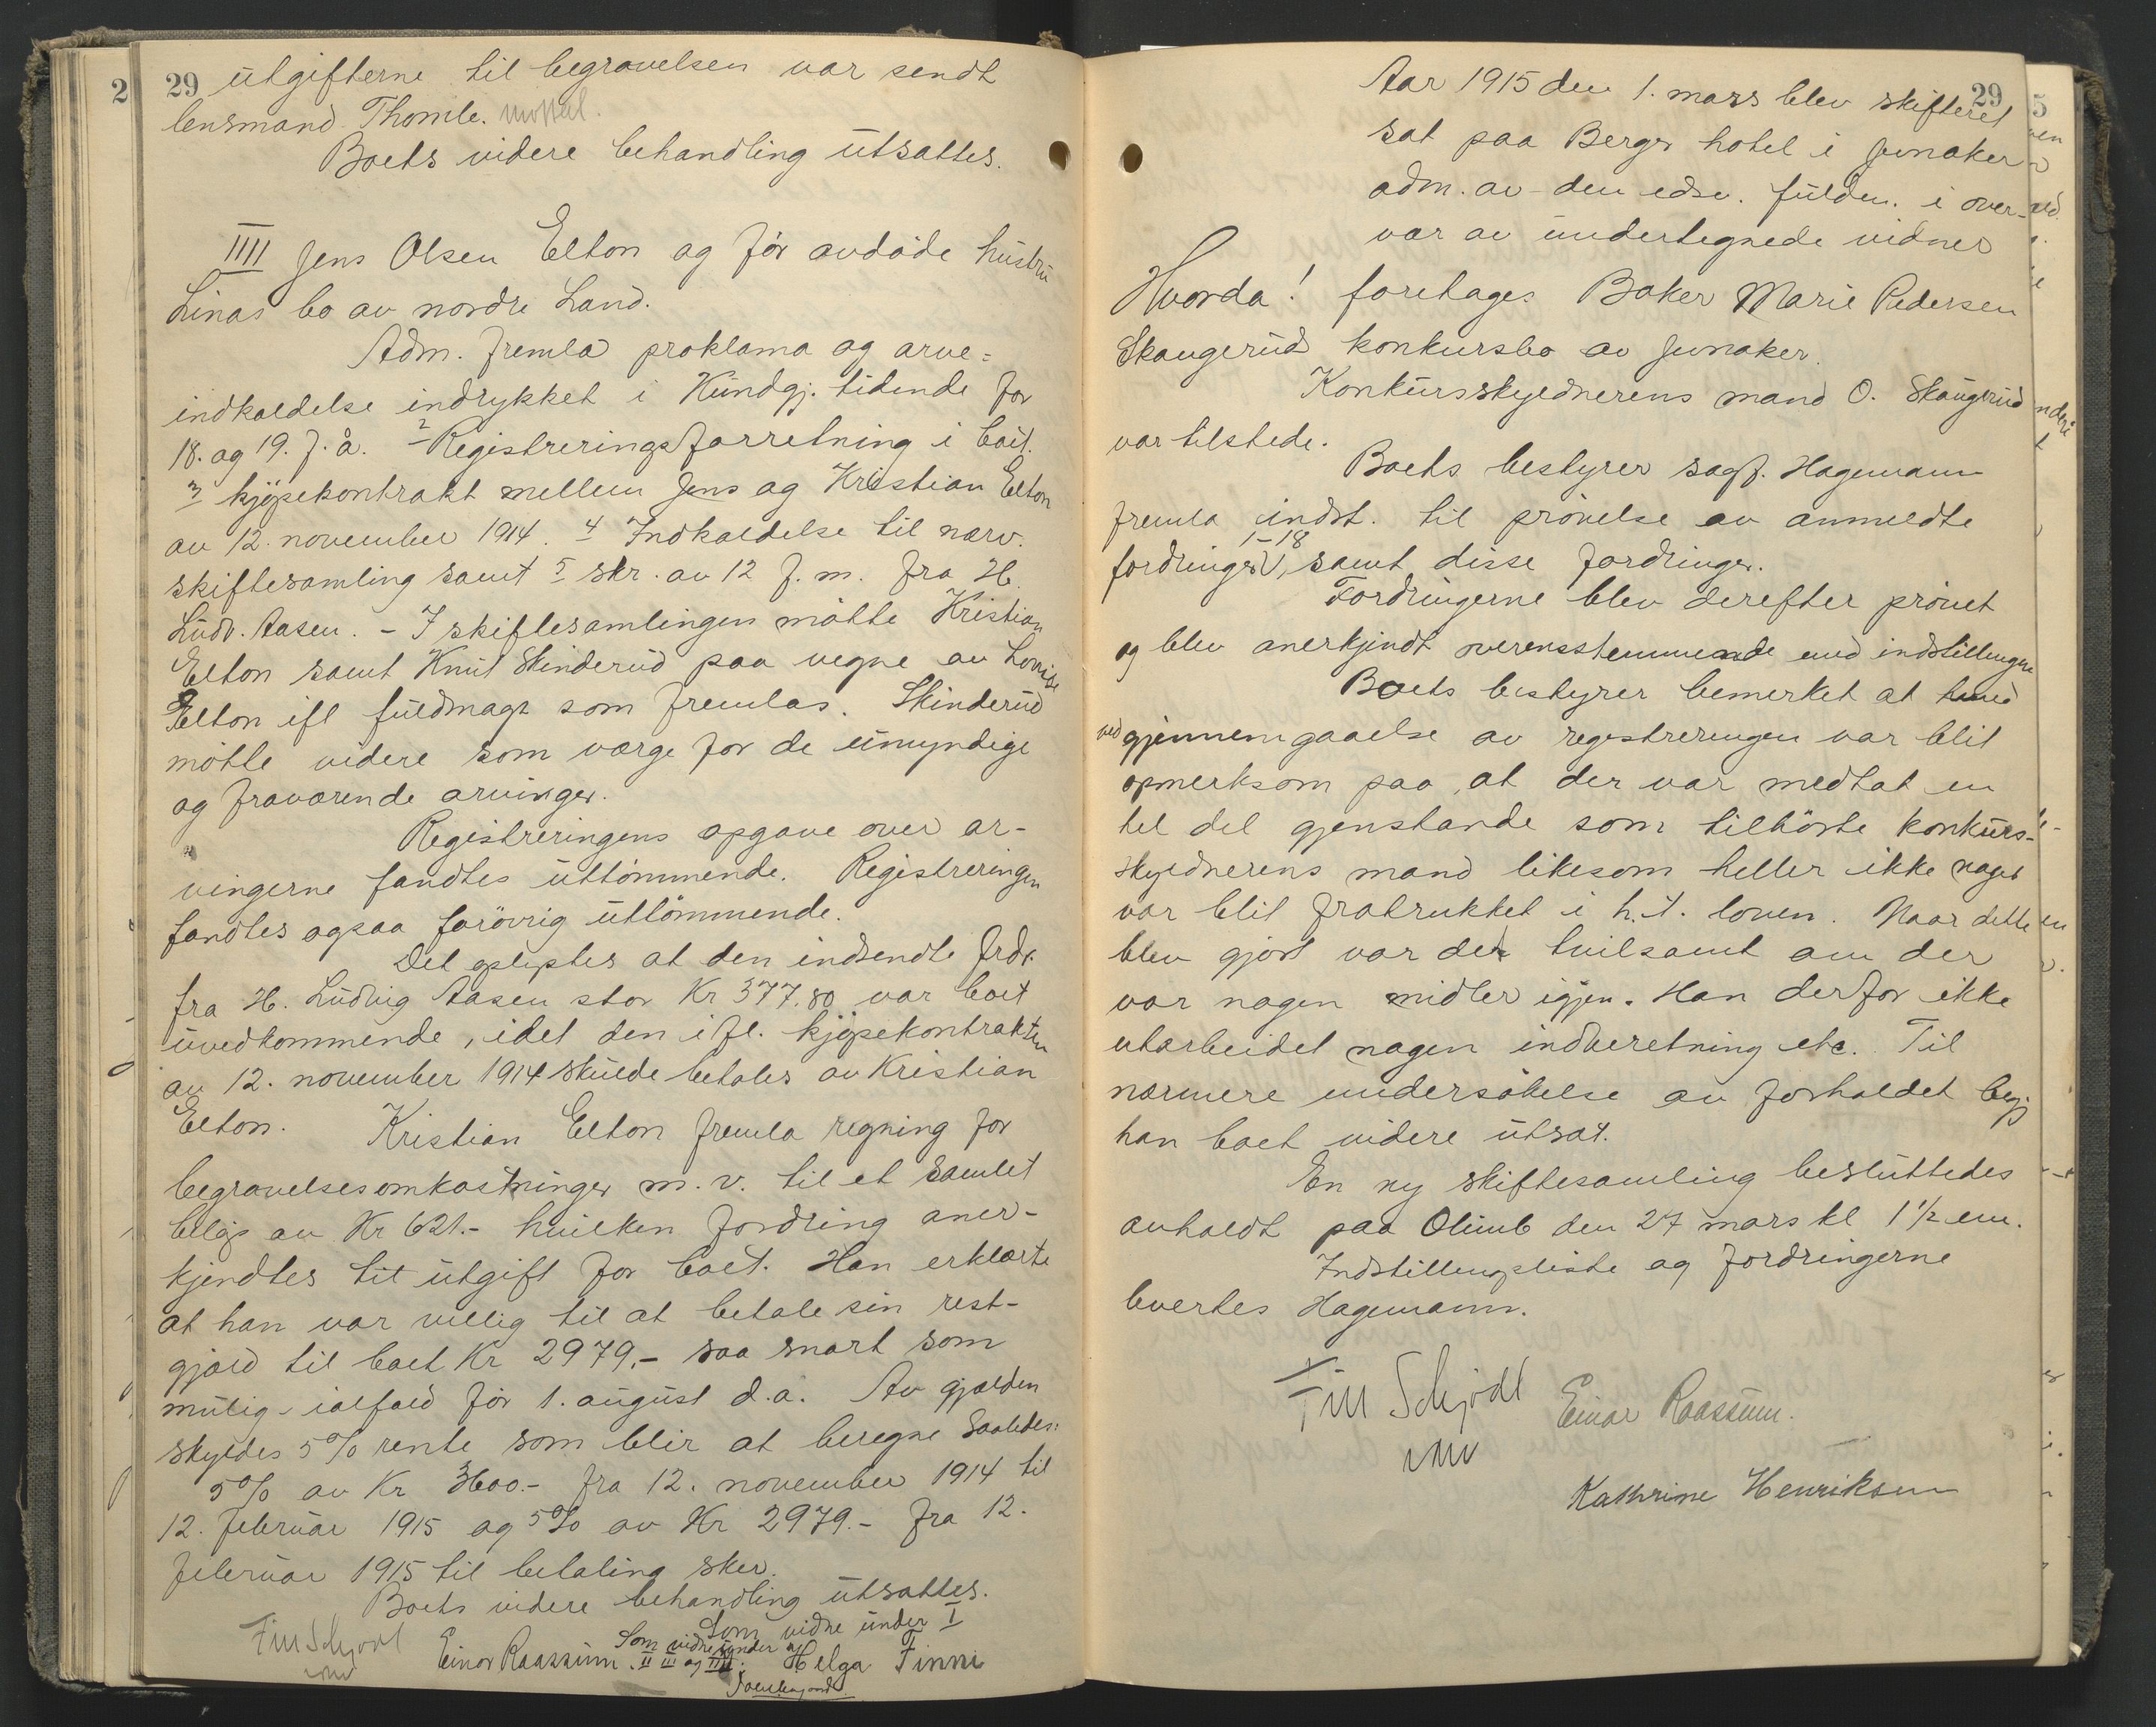 29 utgifterne til begravelsen var sendt
lensmand Thomle.
Boets videre behandling utsattes.
IIII Jens Olsen Elton og før avdøde hustru
Linas bo av nordre Land.
Adm. fremla proklama og arve=
indkaldelse indrykket i Kundgj. tidende for
18. og 19. f. å. 2 Registreringsforretning i boet.
3 kjøpekontrakt mellem Jens og Kristian Elton
av 12. november 1914. 4 Indkaldelse til nærv.
skiftesamling samt 5 skr. av 12 f. m. fra H.
Ludv. Aasen. - I skiftesamlingen møtte Kristian
Elton samt Knut Skinderud paa vegne av Lovise
Elton ifl fuldmagt som fremlas. Skinderud
møtte videre som værge for de umyndige
og fraværende arvinger.
Registreringens opgave over ar-
vingerne fandtes uttømmende. Registreringen
fandtes ogsaa forøvrig uttømmende.
Det oplystes at den indsendte frdr.
fra H. Ludvig Aasen stor Kr 377.80 var boet
uvedkommende, idet den ifl. kjøpekontrakten
av 12. november 1914 skulde betales av Kristian
Elton. Kristian Elton fremla regning for
begravelsesomkostninger m. v. til et samlet
beløp av Kr 621.- hvilken fordring aner-
kjendtes til utgift for boet. Han erklærte
at han var villig til at betale sin rest-
gjæld til boet Kr 2979,- saa snart som
mulig - ialfald før 1. august d. a. Av gjælden
skyldes 5% rente som blir at beregne saaledes:
5% av Kr 3600.- fra 12. november 1914 til
12. februar 1915 og 5% av Kr 2979.- fra 12.
februar 1915 til betaling sker.
Boets videre behandling utsattes.
Som vidne under I
Finn Schjødt Einar Raassum. Som vidne under II III og IIII. Helga Finni
29
Aar 1915 den 1. mars blev skifteret
sat paa Bergs hotel i Jevnaker
adm. av den edsv. fuldm. i over-
vær av undertegnede vidner
Hvorda! foretages Baker Marie Pedersen
Skaugerud konkursbo av Jevnaker.
Konkursskyldnerens mand O. Skaugerud
var tilstede.
Boets bestyrer sagf. Hagemann
fremla indst. til prøvelse av anmeldte
fordringer 1-18, samt disse fordringer.
Fordringerne blev derefter prøvet
og blev anerkjendt overensstemmende med indstillingen
Boets bestyrer bemerket at
ved gjennemgaaelse av registreringen var blit
opmerksom paa, at der var medtat en
hel del gjenstande som tilhørte konkurs-
skyldnerens mand likesom heller ikke noget
var blit fratrukket i h. t. loven. Naar dette
blev gjort var det tvilsomt om der
var nogen midler igjen. Han derfor ikke
utarbeidet nogen indberetning etc. Til
nærmere undersøkelse av forholdet begj
han boet videre utsat.
En ny skiftesamling besluttedes
avholdt paa Olimb den 27 mars kl 1 1/2 em.
Indstillingsliste og fordringerne
leveres Hagemann.
Finn Schjødt Einar Raassum.
Kathrine Henriksen